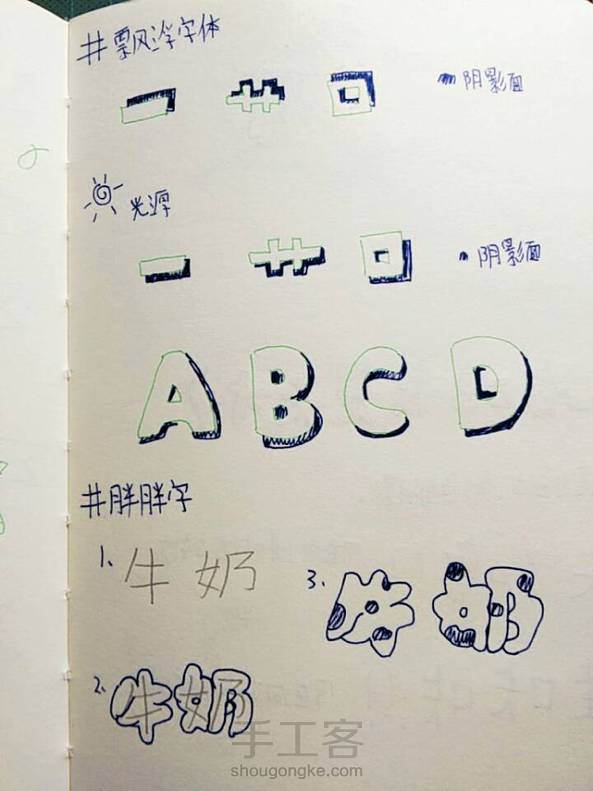 #飘浮字体
一 艹 口 阴影面
光源
一 艹 口 阴影面
A B C D
#胖胖字
1、牛 奶
3、牛 奶
2、牛奶
手工客
shougongke.com